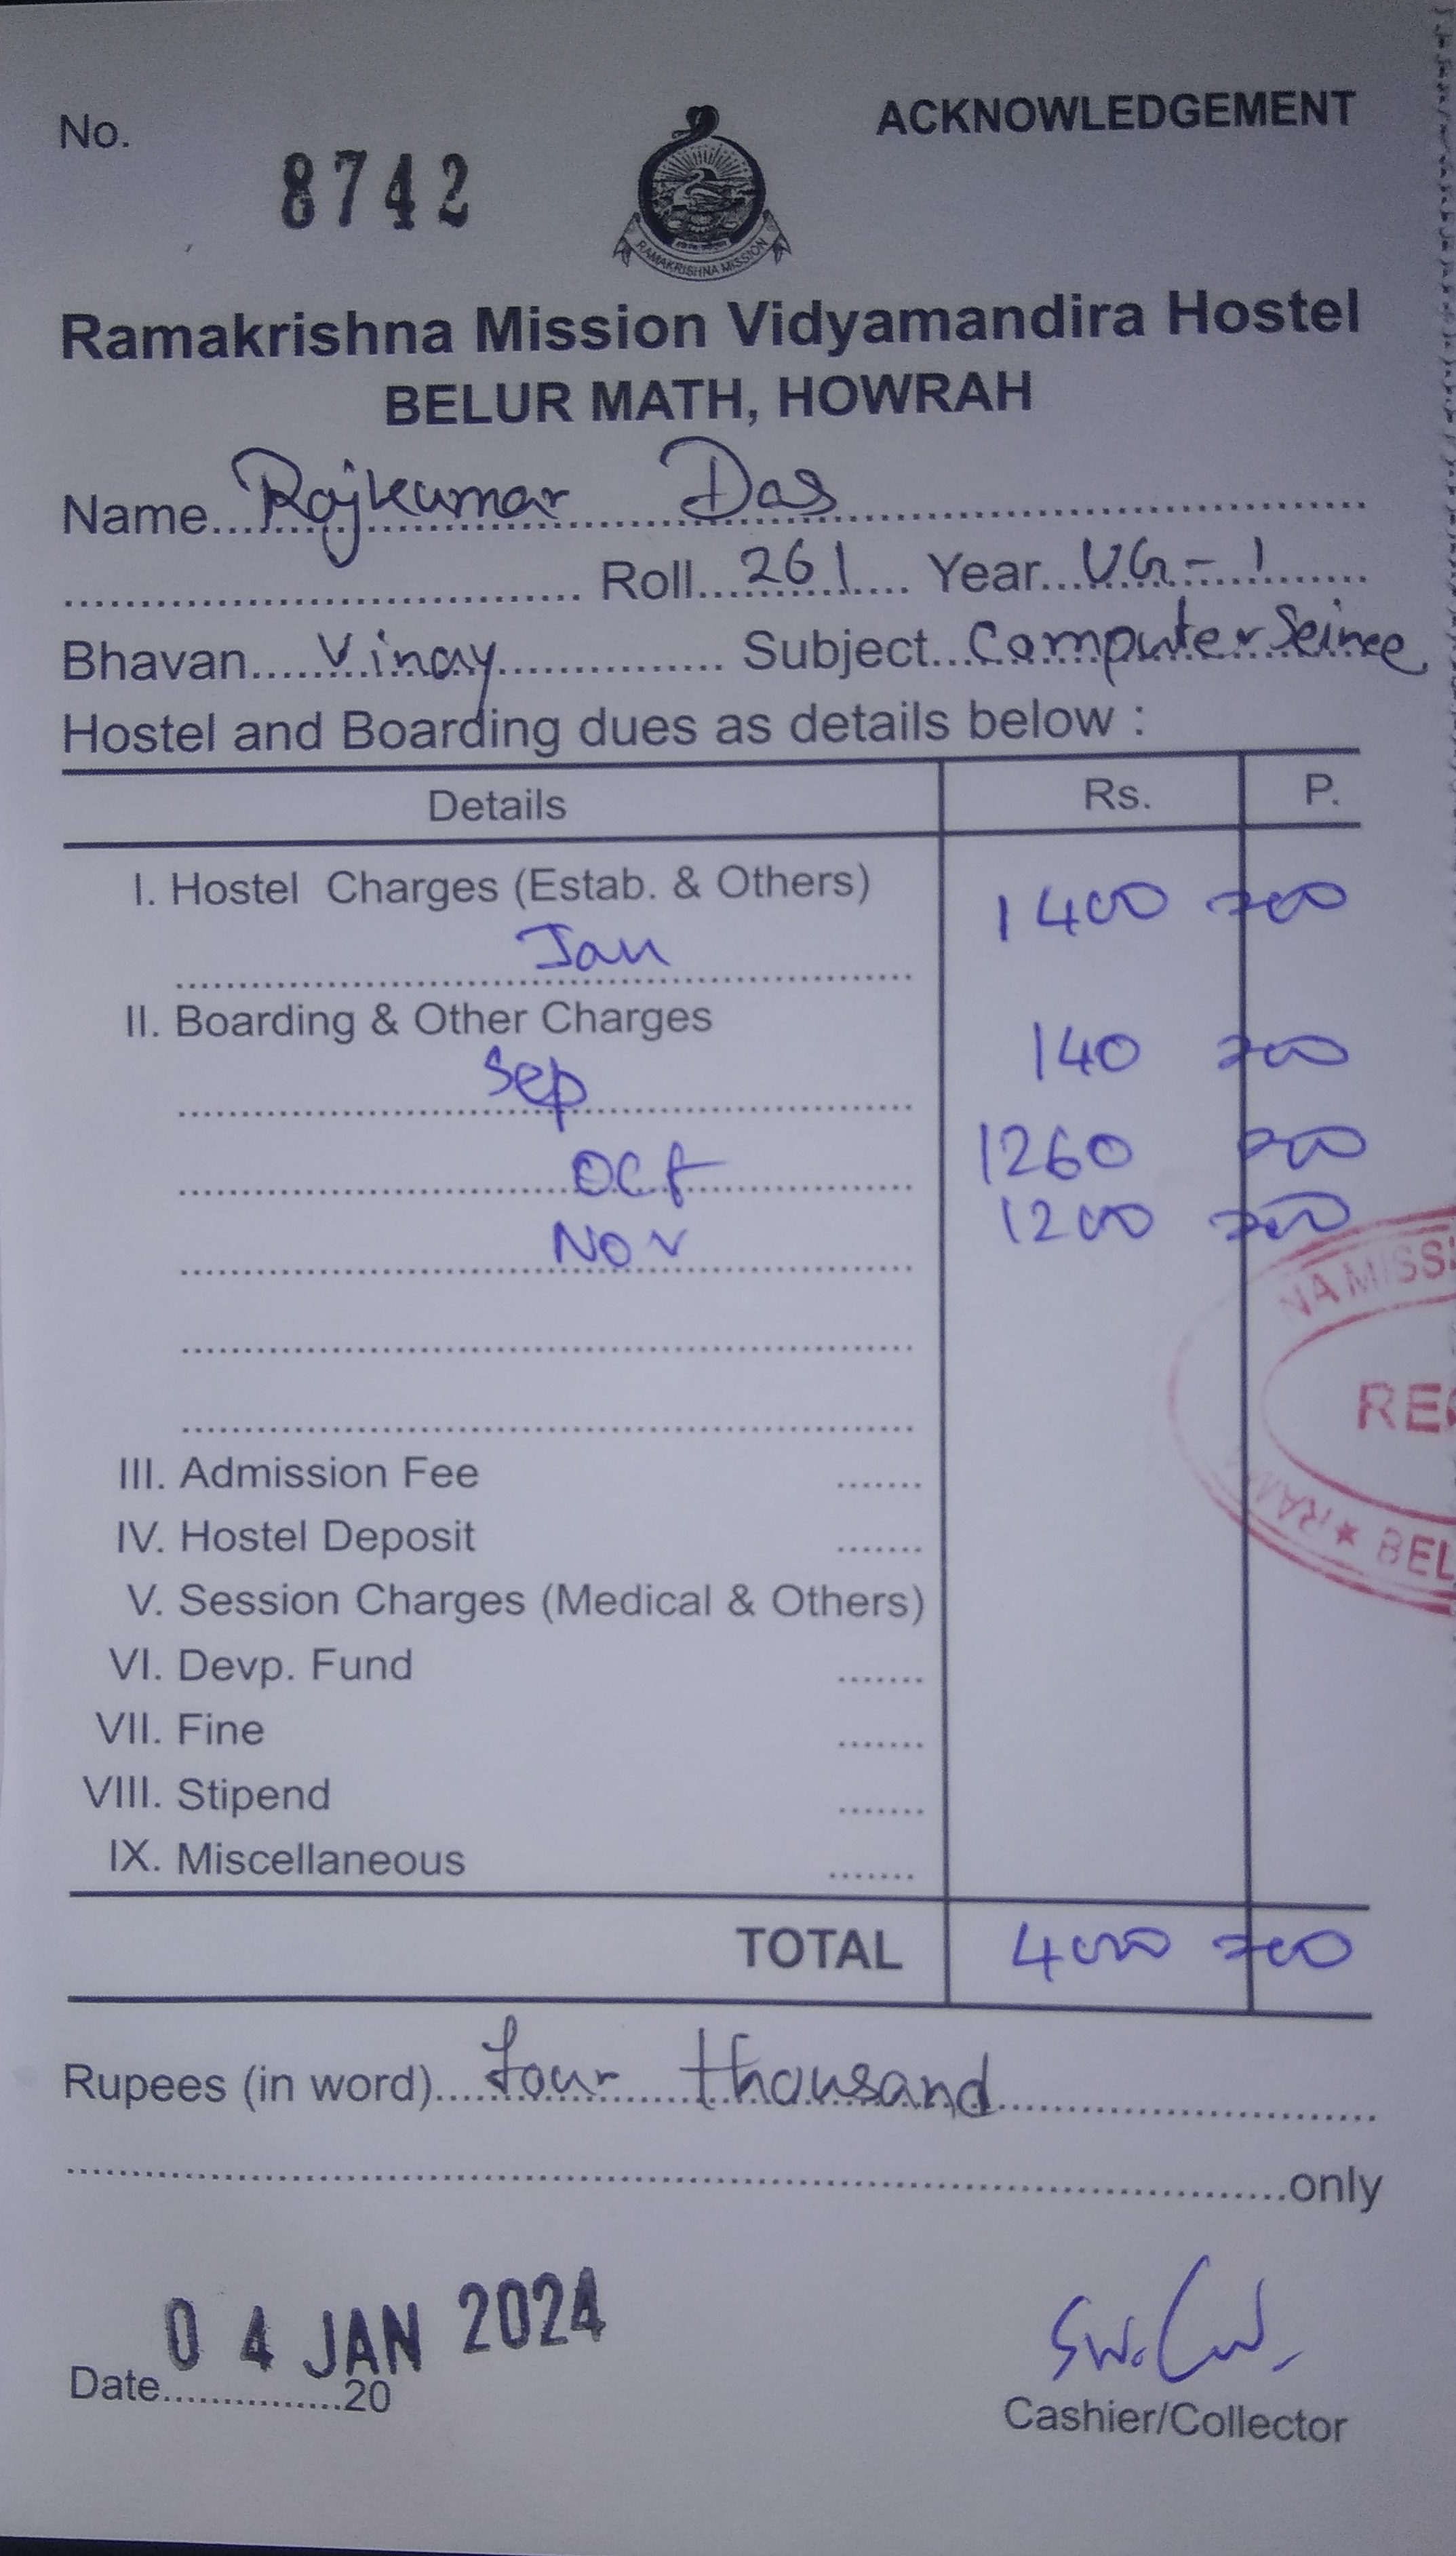 No. 8742 ACKNOWLEDGEMENT
RAMAKRISHNA MISSION
Ramakrishna Mission Vidyamandira Hostel
BELUR MATH, HOWRAH
Name Rajkumar Das
Roll 261 Year UG-1
Bhavan Vinay Subject Computer Seince
Hostel and Boarding dues as details below :
Details Rs. P.
I. Hostel Charges (Estab. & Others) 1400 =00
Jan
II. Boarding & Other Charges
Sep 140 =00
Oct 1260 =00
Nov 1200 =00
NA MISSI
RE
RAM ★ BEL
III. Admission Fee .......
IV. Hostel Deposit .......
V. Session Charges (Medical & Others)
VI. Devp. Fund .......
VII. Fine .......
VIII. Stipend .......
IX. Miscellaneous .......
TOTAL 4000 =00
Rupees (in word) four thousand
only
04 JAN 2024
Date 20
Cashier/Collector